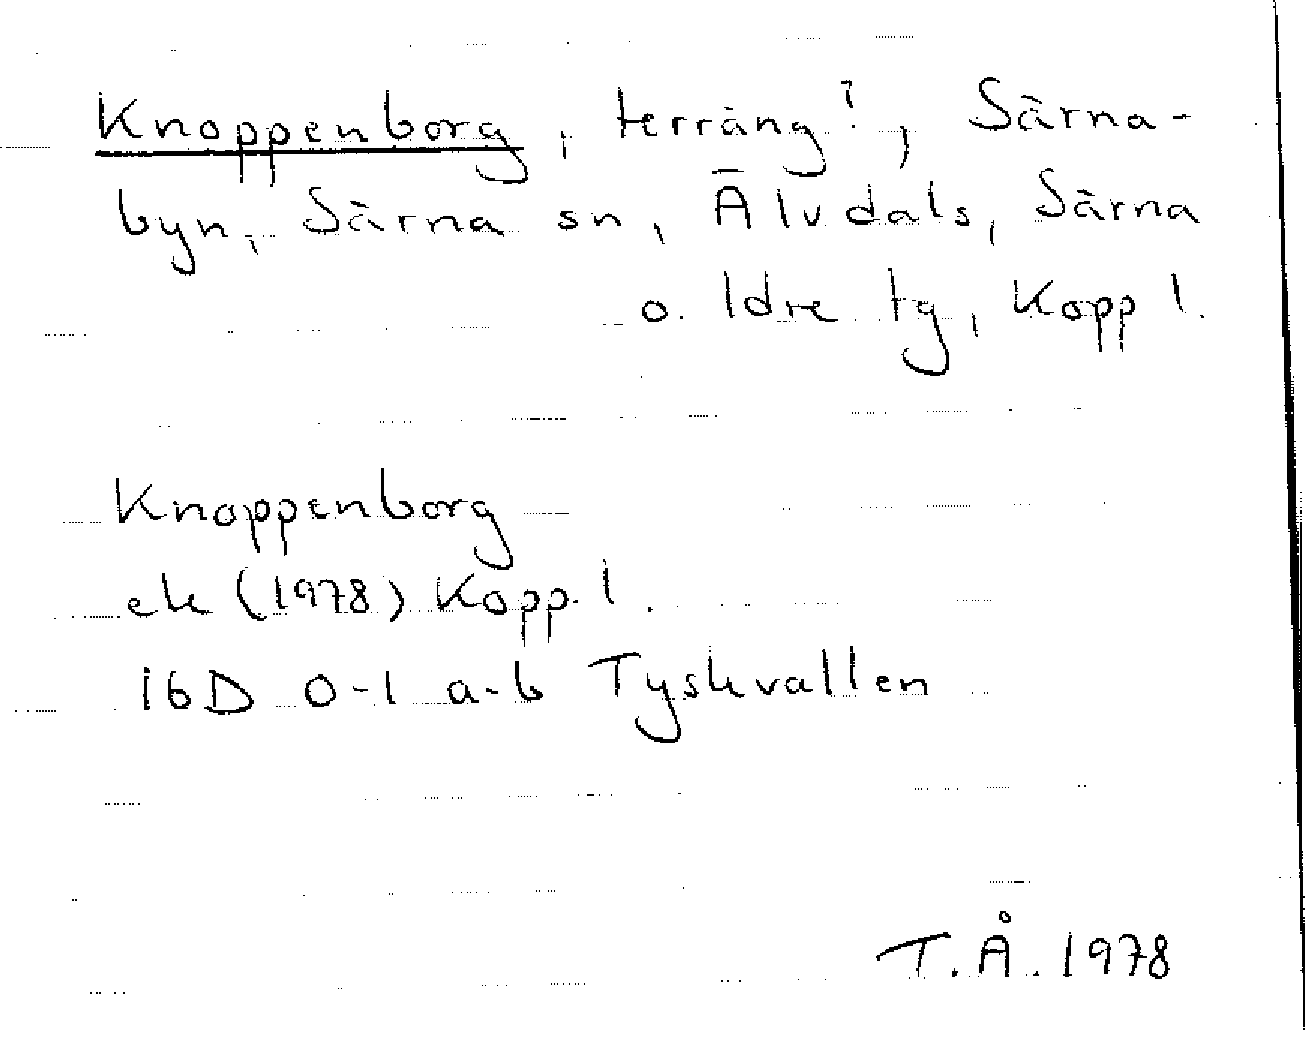 Knoppenborg, terräng?, Särna-
byn, Särna sn, Älvdals, Särna
o. Idre tg, Kopp l.
Knoppenborg
ek (1978) Kopp. l.
16D 0-1 a-b Tyskvallen
T.Å. 1978